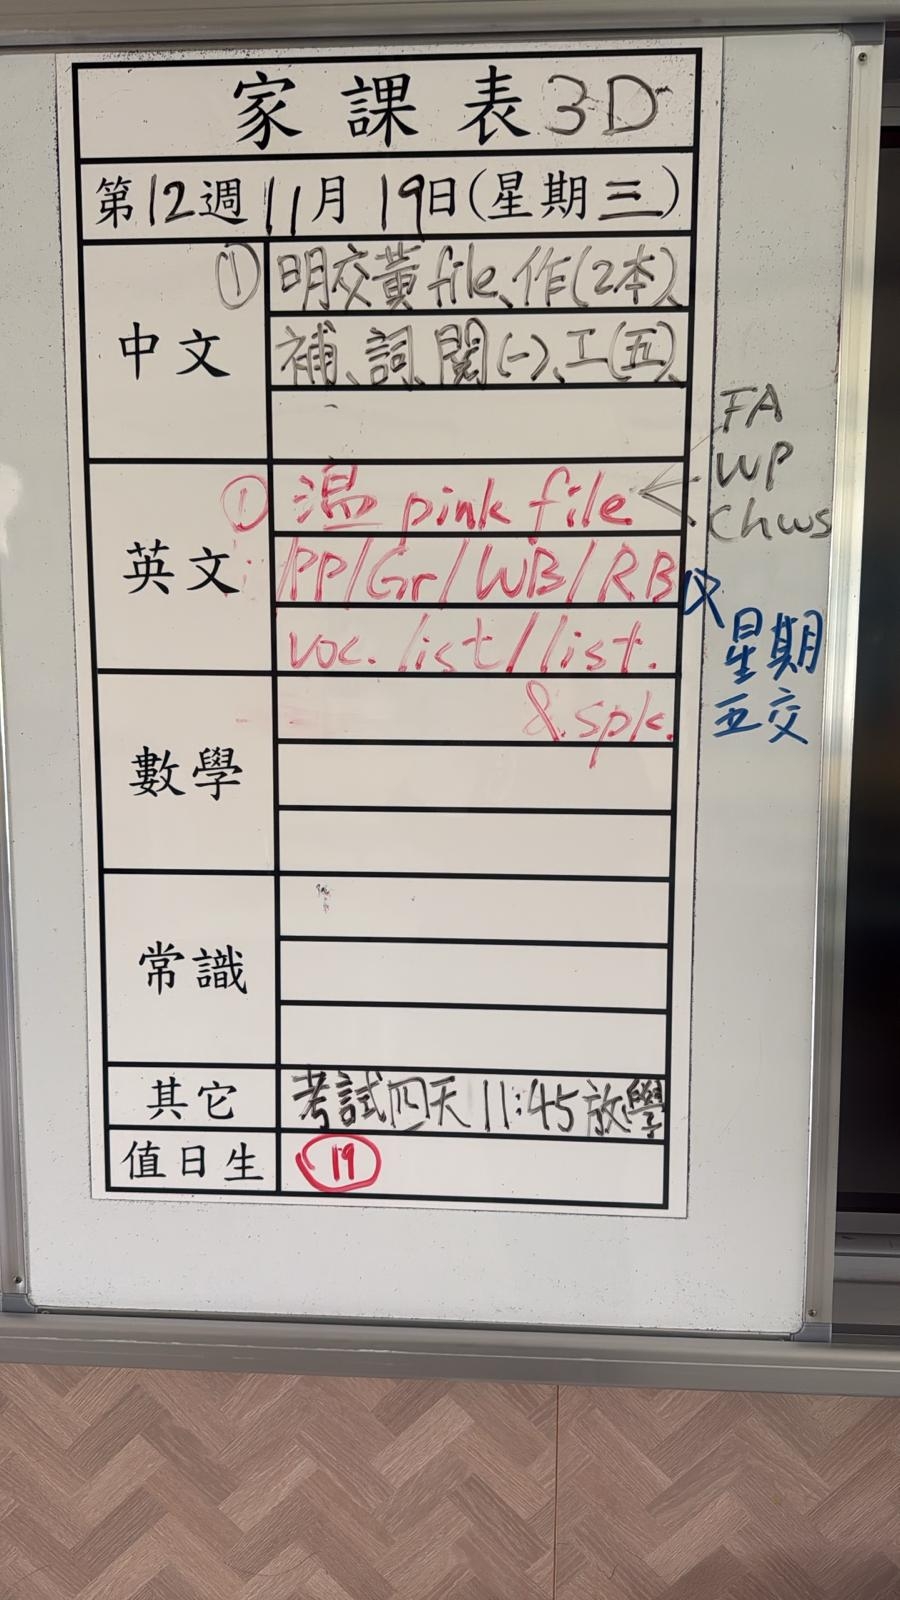 家課表3D
第12週11月19日(星期三)
中文
① 明交黃file、作(2本)、
補、詞、閱(一)、工(五)、
英文
① 溫 pink file.
FA
WP
Chws
PP/Gr/WB/RB
voc. list/list.
& spk.
星期
五交
數學
常識
其它
考試四天11:45放學
值日生
19